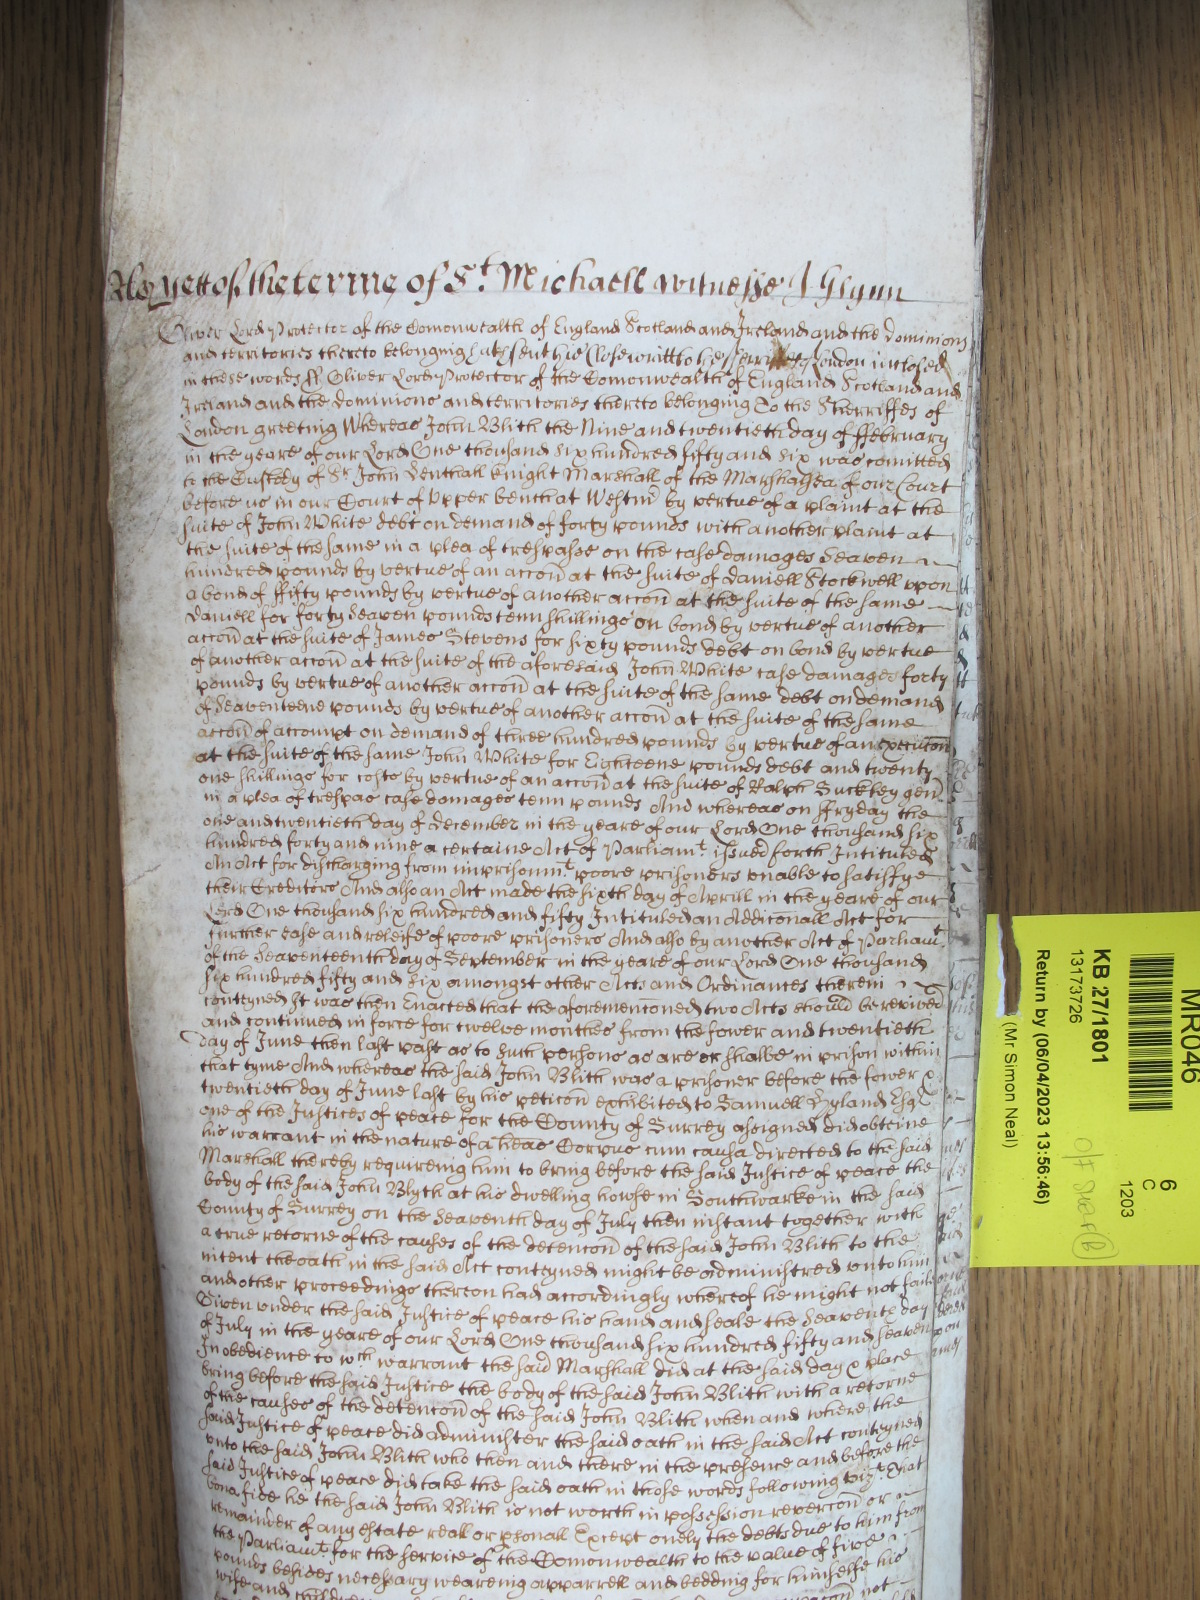 As yett of the terme of St. Michaell Witnesse J Glynn
Oliver Lord Protector of the Comonwealth of England Scotland and Ireland and the dominions
and territories thereto belonging hath sent his Close writt to the Sherriffes of London inclosed
in these words ss Oliver Lord Protector of the Comonwealth of England Scotland and
Ireland and the dominions and territories thereto belonging To the Sherriffes of
London greeting Whereas John Blith the Nine and twentieth day of ffebruary
in the yeare of our Lord One thousand six hundred fifty and six was comitted
to the Custody of Sr John Lenthall knight Marshall of the Marshalsea of our Court
before us in our Court of Upper bench at Westmr by vertue of a plaint at the
suite of John White debt on demand of forty pounds with another plaint at
the suite of the same in a plea of trespasse on the case damages Seaven
hundred pounds by vertue of an accon at the suite of Daniell Stockwell upon
a bond of ffifty pounds by vertue of another accon at the suite of the same
Daniell for forty Seaven pounds tenn shillings on bond by vertue of another
accon at the suite of James Stevens for sixty pounds debt on bond by vertue
of another accon at the suite of the aforesaid John White case damages forty
pounds by vertue of another accon at the suite of the same debt on demand
of Seaventeene pounds by vertue of another accon at the suite of the same
accon of accompt on demand of three hundred pounds by vertue of an execucon
at the suite of the same John White for Eighteene pounds debt and twenty
one shillings for costs by vertue of an accon at the suite of Ralph Suckley gen
in a plea of trespas case damages tenn pounds And whereas on ffryday the
one and twentieth day of December in the yeare of our Lord One thousand six
hundred forty and nine a certaine Act of Parliamt. issued forth Intituled
An Act for discharging from imprisonmt. poore prisoners unable to satisfye
their Creditors And also an Act made the sixth day of Aprill in the yeare of our
Lord One thousand six hundred and fifty Intituled an Addiconall Act for
further ease and releife of poore prisoners And also by another Act of Parliamt.
of the Seaventeenth day of September in the yeare of our Lord One thousand
six hundred fifty and six amongst other Acts and Ordinances therein
conteyned It was then Enacted that the aforementoned two Acts should be revived
and continued in force for twelve monthes from the fower and twentieth
day of June then last past as to such persons as are or shalbe in prison within
that tyme And whereas the said John Blith was a prisoner before the fower &
twentieth day of June last by his peticon exhibited to Samuell Hyland Esqr
one of the Justices of peace for the County of Surrey assigned did obteine
his warrant in the nature of a heas Corpus cum causa directed to the said
Marshall thereby requireing him to bring before the said Justice of peace the
body of the said John Blyth at his dwelling howse in Southwarke in the said
County of Surrey on the Seaventh day of July then instant together with
a true retorne of the causes of the detencon of the said John Blith to the
intent the oath in the said Act conteyned might be administred unto him
and other proceedings thereon had accordingly whereof he might not faile
Given under the said Justice of peace his hand and seale the Seaventh day
of July in the yeare of our Lord One thousand six hundred fifty and seaven
In obedience to wch warrant the said Marshall did at the said day & place
bring before the said Justice the body of the said John Blith with a retorne
of the causes of the detencon of the said John Blith when and where the
said Justice of peace did administer the said oath in the said Act conteyned
unto the said John Blith who then and there in the presence and before the
said Justice of peace did take the said oath in those words following vizt That
bona fide he the said John Blith is not worth in possession revercon or
remainder of any estate reall or psonall Except onely the debts due to him from
the Parliamt. for the service of the Comonwealth to the value of five
pounds besides necessary weareing apparrell and bedding for himselfe his
wife and children
MR046
6
C
1203
KB 27/1801
13173726
Return by (06/04/2023 13:56:46)
(Mr Simon Neal)